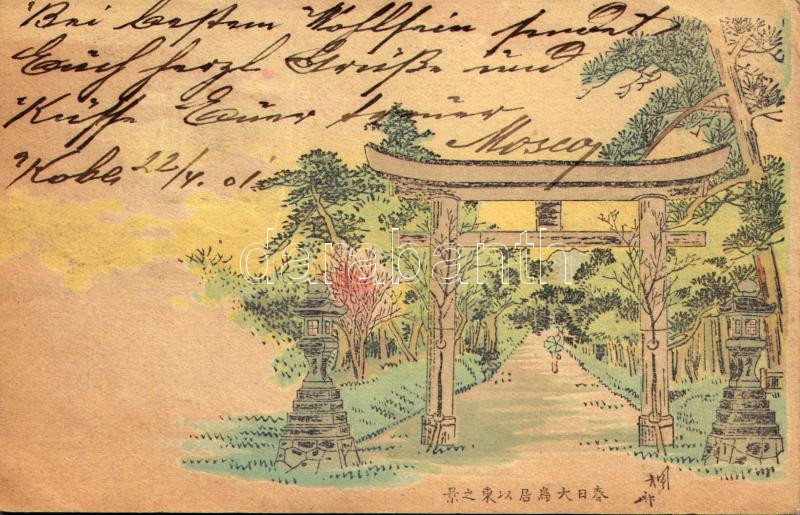 Bei bestem Wohlsein sendet
Euch herzl Grüße und
Küsse Euer treuer
Kobe 22/4.01
darabanth
春日大鳥居以東之景